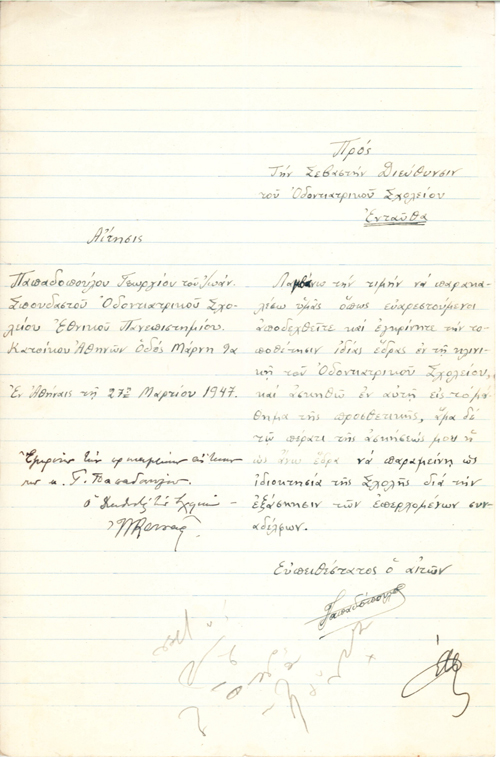 Πρός
Τήν Σεβαστήν Διεύθυνσιν
τοῦ Ὀδοντιατρικοῦ Σχολείου
Ἐνταῦθα
Αἴτησις
Παπαδοπούλου Γεωργίου τοῦ Ἰωάν.
Σπουδαστοῦ Ὀδοντιατρικοῦ Σχο-
λείου Ἐθνικοῦ Πανεπιστημίου.
Κατοίκου Ἀθηνῶν Ὁδός Μάρνη 9α
Ἐν Ἀθήναις τῇ 27ῃ Μαρτίου 1947.
Λαμβάνω τήν τιμήν νά παρακα-
λέσω ὑμᾶς ὅπως εὐαρεστούμενοι
ἀποδεχθεῖτε καί ἐγκρίνητε τήν το-
ποθέτησιν ἰδίας ἕδρας ἐν τῇ κλινι-
κῇ τοῦ Ὀδοντιατρικοῦ Σχολείου,
καί ἀσκηθῶ ἐν αὐτῇ εἰς τό μά
θημα τῆς προσθετικῆς, ἅμα δέ
τῷ πέρατι τῆς ἀσκήσεώς μου ἡ
ὡς ἄνω ἕδρα νά παραμείνῃ ὡς
ἰδιοκτησία τῆς Σχολῆς διά τήν
ἐξάσκησιν τῶν ἐπερχομένων συν-
αδέλφων.
Εὐπειθέστατος ὁ αἰτῶν
Παπαδόπουλος